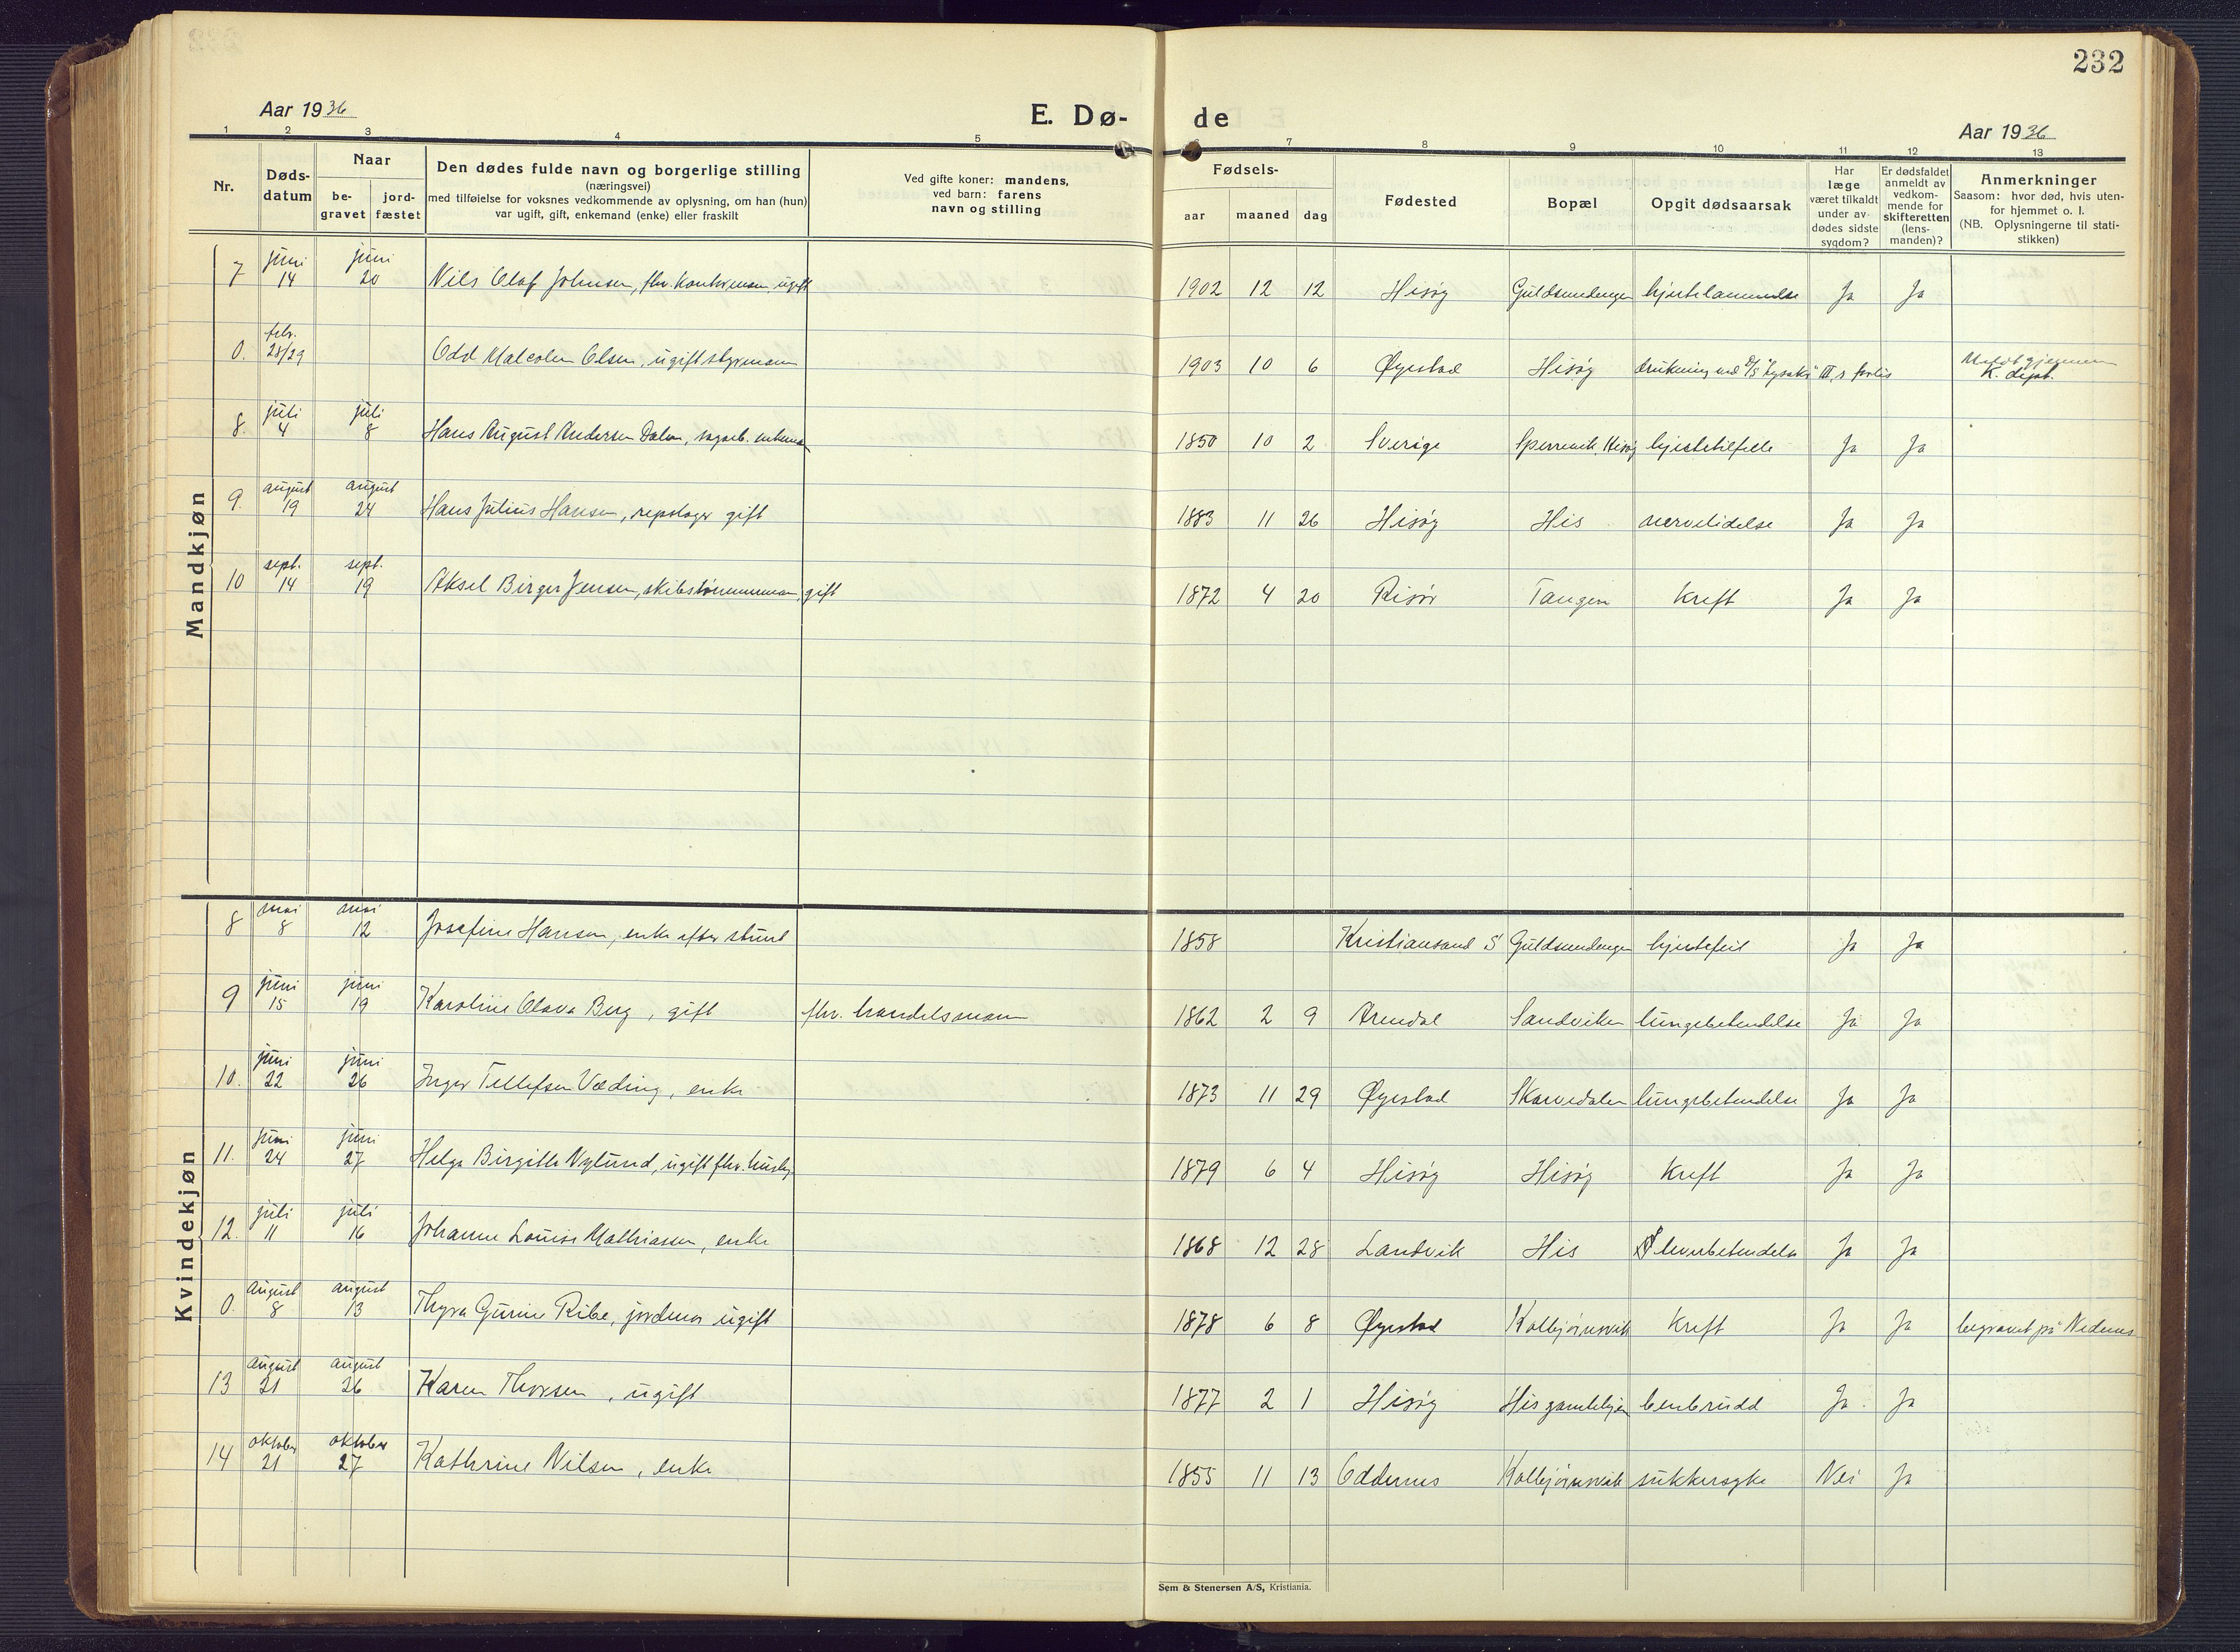 232
Aar 1936
E. Dø-
de
Aar 1936
1 2 3 4 5 7 8 9 10 11 12 13
Nr.
Døds-
datum
Naar
be-
gravet
jord-
fæstet
Den dødes fulde navn og borgerlige stilling
(næringsvei)
med tilføielse for voksnes vedkommende av oplysning, om han (hun)
var ugift, gift, enkemand (enke) eller fraskilt
Ved gifte koner: mandens,
ved barn: farens
navn og stilling
Fødsels-
aar maaned dag
Fødested
Bopæl
Opgit dødsaarsak
Har
læge
været tilkaldt
under av-
dødes sidste
sygdom?
Er dødsfaldet
anmeldt av
vedkom-
mende for
skifteretten
(lens-
manden)?
Anmerkninger
Saasom: hvor død, hvis uten-
for hjemmet o. l.
(NB. Oplysningerne til stati-
stikken)
Mandkjøn
juni juni
7 14 20 Nils Olaf Johnsen, fhv. kontormann, ugift 1902 12 12 Hisøy Guldsmedengen hjertelammelse Ja Ja
febr.
0. 28/29 Odd Malcolm Olsen, ugift styrmann 1903 10 6 Øyestad Hisøy drukning med D/S "Lysaker III"s forlis K. dept.
juli juli
8. 4 8 Hans August Andersen Dalen, sagarb. enkemann 1850 10 2 Sverige Sperrevik, Hisøy hjertetilfelle Ja Ja
august august
9. 19 24 Hans Julius Hansen, repslager gift 1883 11 26 Hisøy His nervelidelse Ja Ja
sept. sept.
10 14 19 Aksel Birger Jensen, skibstømmermann, gift 1872 4 20 Risør Tangen Kreft Ja Ja
Kvindekjøn
mai mai
8 8 12 Josefine Hansen, enke efter stuert 1858 Kristiansand S Guldsmedengen hjertefeil Ja Ja
juni juni
9 15 19 Karoline Olava Berg, gift fhv. handelsmann 1862 2 9 Arendal Sandviken lungebetendelse Ja Ja
juni juni
10. 22 26 Inger Tellefsen Væding, enke 1873 11 29 Øyestad Skarvedalen lungebetendelse Ja Ja
juni juni
11. 24 27 Helga Birgitte Nylund, ugift fhv. 1879 6 4 Hisøy Hisøy Kreft Ja Ja
juli juli
12. 11 16 Johanne Louise Mathiassen, enke 1868 12 28 Landvik His leverbetendelse Ja Ja
august august
0. 8 13 Thyra Gurine Ribe, jordmor ugift 1878 6 8 Øyestad Kolbjørnsvik Kreft Ja Ja begravet på Nedenes
august august
13 21 26 Karen Thorsen, ugift 1877 2 1 Hisøy His gamlehjem benbrudd Ja Ja
oktober oktober
14 21 27 Kathrine Nilsen, enke 1855 11 13 Oddernes Kolbjørnsvik sukkersyke Nei Ja
Sem & Stenersen A/S, Kristiania.